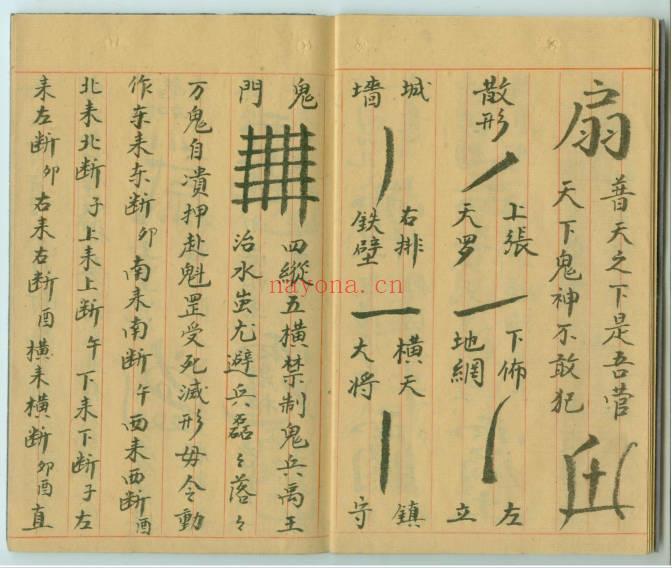 扇
普天之下是吾营
天下鬼神不敢犯
散形
上張
天罗
下佈
地網
左
立
城
墙
右排
鉄壁
橫天
大将
鎮
守
鬼
門
四縱五橫禁制鬼兵禹王
治水蚩尤避兵磊々落々
万鬼自潰押赴魁罡受死滅形毋令動
作东来东断卯南来南断午西来西断酉
北来北断子上来上断午下来下断子左
来左断卯右来右断酉橫来橫断卯酉直
nayona.cn